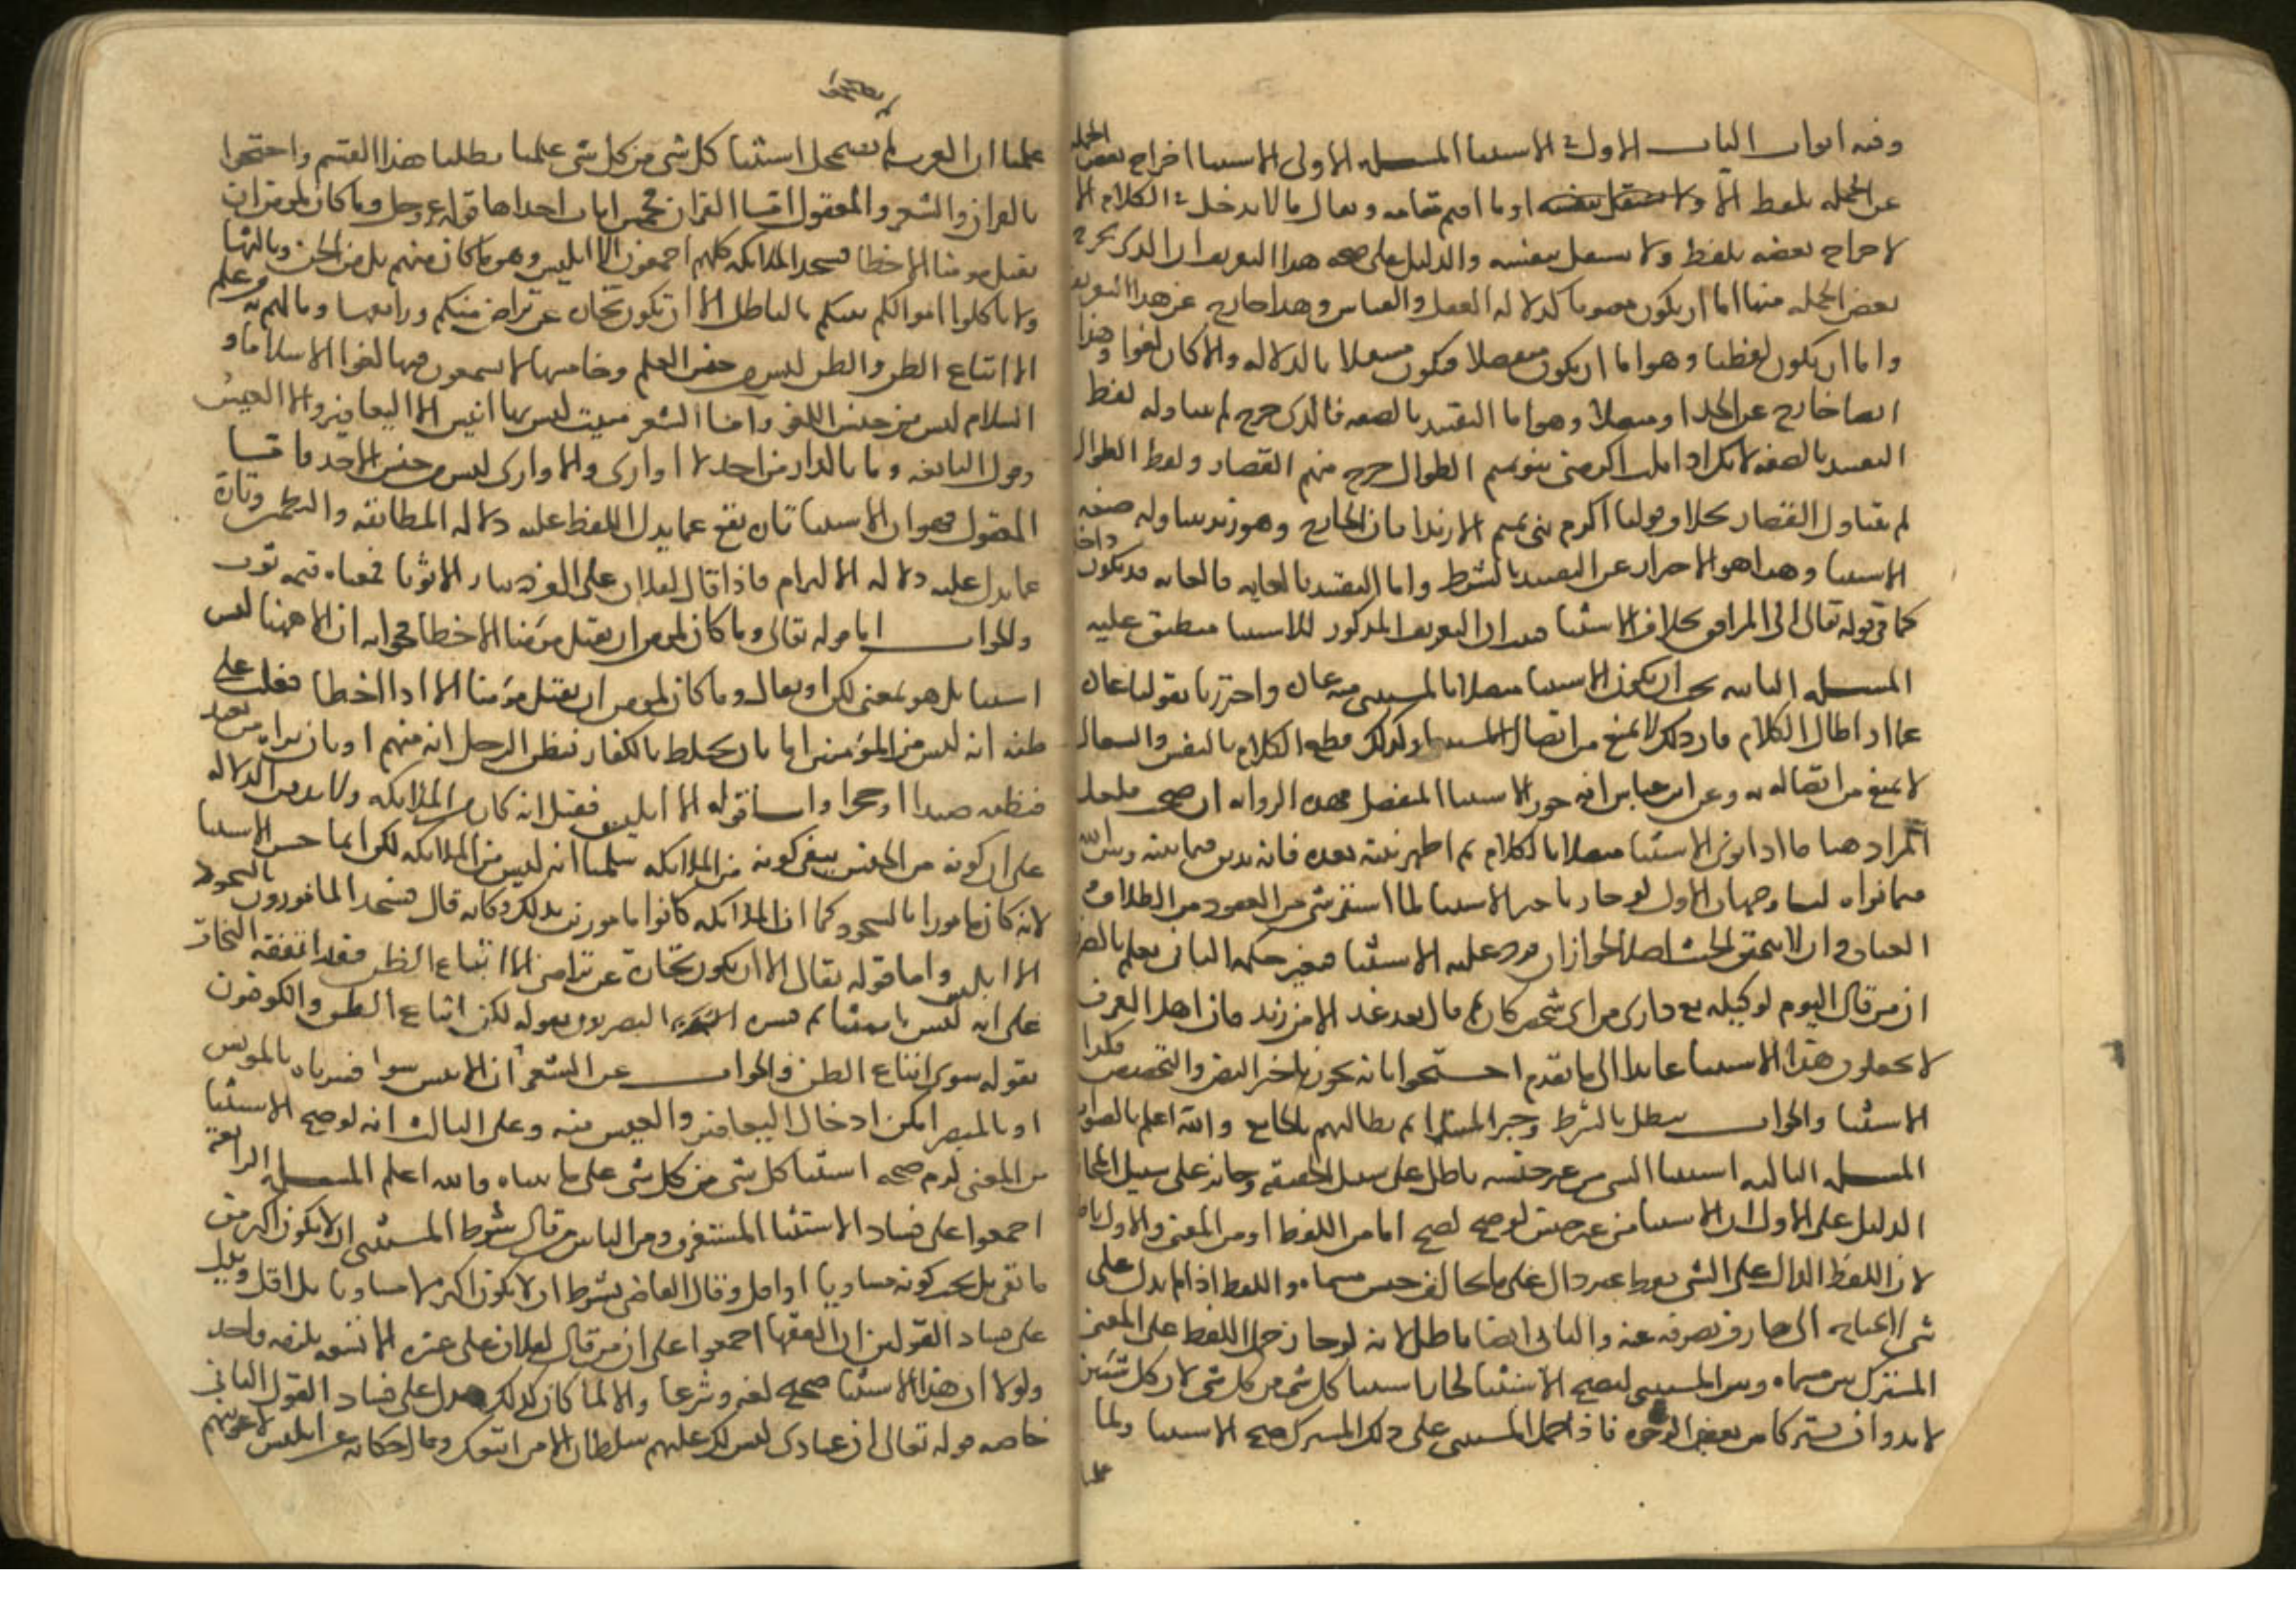 وفيه ابواب الباب الاول في الاستثنا المسله الاولى الاستثنا اخراج بعض الجمله
عن الجمله بلفظ الا او ما اقيم مقامه ويقال ما لا يدخل في الكلام الا
لاخراج بعضه بلفظ ولا يستقل بنفسه والدليل على صحه هذا التعريف ان الذي يخرج
بعض الجمله منها اما ان يكون معنويا كدلاله العقل والقياس وهذا خارج عن هذا التعريف
واما ان يكون لفظيا وهو اما ان يكون منفصلا فيكون مستقلا بالدلاله والا كان لغوا وهذا
ايضا خارج عن الحد او متصلا وهو اما التقييد بالصفه فالذي خرج لم يتناوله لفظ
التقييد بالصفه لانك اذا قلت اكرمني بنو تميم الطوال خرج منهم القصار ولفظ الطوال
لم يتناول القصار بخلاف قولنا اكرم بني تميم الا زيدا فان الخارج وهو زيد تناوله صيغه
الاستثنا وهذا هو الاحتراز عن التقييد بالشرط واما التقييد بالغايه فالغايه قد تكون داخله
كما في قوله تعالى الى المرافق بخلاف الاستثنا فثبت ان التعريف المذكور للاستثنا منطبق عليه
المسله الثانيه يجب ان يكون الاستثنا متصلا بالمستثنى منه عاده واحترزنا بقولنا عاده
عما اذا طال الكلام فان ذلك لا يمنع من اتصال الاستثنا وكذلك قطع الكلام بالنفس والسعال
لا يمنع من اتصاله به وعن ابن عباس انه جوز الاستثنا المنفصل وهذه الروايه ان صحت فلعل
المراد منها ما اذا نوى الاستثنا متصلا بالكلام ثم اظهر نيته بعده فانه يدين فيما بينه وبين الله
فيما نواه لنا وجهان الاول لو جاز تاخير الاستثنا لما استقر شي من العقود من الطلاق و
العتاق وان لا يتحقق الحنث اصلا لجواز ان يرد عليه الاستثنا فيغير حكمه الثاني نعلم بالضر
ان من قال اليوم لوكيله بع داري من اي شخص كان ثم قال بعد غد الا من زيد فان اهل العرف
لا يجعلون هذا الاستثنا عايدا الى ما تقدم احتجوا بانه يجوز تاخير النص والتخصيص فكذا
الاستثنا والجواب يبطل بالشرط وخبر المبتدا ثم نطالبهم بالجامع والله اعلم بالصواب
المسله الثالثه استثنا الشي من غير جنسه باطل على سبيل الحقيقه وجايز على سبيل المجاز
الدليل على الاول ان الاستثنا من غير جنس لو صح لصح اما من اللفظ او من المعنى والاول باطل
لان اللفظ الدال على الشي فقط غير دال على ما يخالف جنس مسماه واللفظ اذا لم يدل على
شي لا يحتاج الى صارف يصرفه عنه والثاني ايضا باطل لانه لو جاز حمل اللفظ على المعنى
المشترك بين مسماه وبين المستثنى ليصح الاستثنا لجاز استثنا كل شي من كل شي لان كل شيين
لا بد وان يشتركا من بعض الوجوه فاذا حمل المستثنى على ذلك المشترك صح الاستثنا ولما
علمنا
علمنا ان العرب لم تستعمل استثنا كل شي من كل شي علمنا بطلان هذا القسم واحتجوا
بالقران والشعر والمعقول اما القران فخمس ايات احداها قوله عز وجل وما كان لمومن ان
يقتل مومنا الا خطا فسجد الملايكه كلهم اجمعون الا ابليس وهو ما كان منهم بل من الجن وثالثها
ولا تاكلوا اموالكم بينكم بالباطل الا ان تكون تجاره عن تراض منكم ورابعها وما لهم به من علم
الا اتباع الظن والظن ليس من جنس العلم وخامسها لا يسمعون فيها لغوا الا سلاما و
السلام ليس من جنس اللغو واما الشعر فبيت ليس بها انيس الا اليعافير والا العيس
وقول النابغه وما بالدار من احد الا اواري والاواري ليس من جنس الاحد واما
المعقول فهو ان الاستثنا تاره يقع عما يدل اللفظ عليه دلاله المطابقه والتضمن وتاره
عما يدل عليه دلاله الالتزام فاذا قال لفلان علي الف دينار الا ثوبا فمعناه قيمه ثوب
والجواب اما قوله تعالى وما كان لمومن ان يقتل مومنا الا خطا فجوابه ان الا ههنا ليس
استثنا بل هو بمعنى لكن او يقال وما كان لمومن ان يقتل مومنا الا اذا اخطا فغلب على
ظنه انه ليس من المومنين اما بان يختلط بالكفار فيظن الرجل انه منهم او بان يراه من بعد
فيظنه صيدا او حجرا واما قوله الا ابليس فقيل انه كان من الملايكه ولا بد من الدلاله
على ان كونه من الجن ينفي كونه من الملايكه سلمنا انه ليس من الملايكه لكن انما حسن الاستثنا
لانه كان مامورا بالسجود كما ان الملايكه كانوا مامورين بذلك فكانه قال فسجد المامورون بالسجود
الا ابليس واما قوله تعالى الا ان يكون تجاره عن تراض الا اتباع الظن فقد اتفقت النحاه
على انه ليس باستثنا ثم فسره البصريون بقوله لكن اتباع الظن والكوفيون
بقوله سوى اتباع الظن والجواب عن الشعر ان الانيس سوا فسرناه بالمونس
او بالمبصر امكن ادخال اليعافير والعيس فيه وعلى الثالث انه لو صح الاستثنا
من المعنى لزم صحه استثنا كل شي من كل شي على ما بيناه والله اعلم المسله الرابعه
اجمعوا على فساد الاستثنا المستغرق ومن الناس من قال شرط المستثنى ان لا يكون اكثر من
ما بقي بل يجب كونه مساويا او اقل وقال القاضي بشرط ان لا يكون اكثر ولا مساويا بل اقل ويدل
على فساد القولين ان الفقها اجمعوا على ان من قال لفلان علي عشره الا تسعه يلزمه واحد
ولولا ان هذا الاستثنا صحيح لغه وشرعا والا لما كان كذلك ويدل على فساد القول الثاني
خاصه قوله تعالى ان عبادي ليس لك عليهم سلطان الا من اتبعك وقال حكايه عن ابليس لاغوينهم